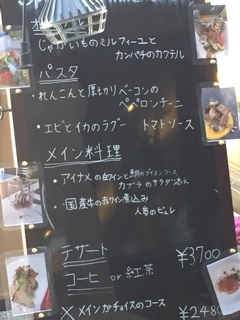 じゃがいものミルフィーユと
カンパチのカクテル
パスタ
・れんこんと厚切りベーコンの
ペペロンチーニ
・エビとイカのラグー トマトソース
メイン料理
・アイナメの白ワインと
カブラのサラダ添え
・国産牛の赤ワイン煮込み
人参のピュレ
デザート
コーヒ or 紅茶
¥3700
× メインがチョイスのコース
¥2480